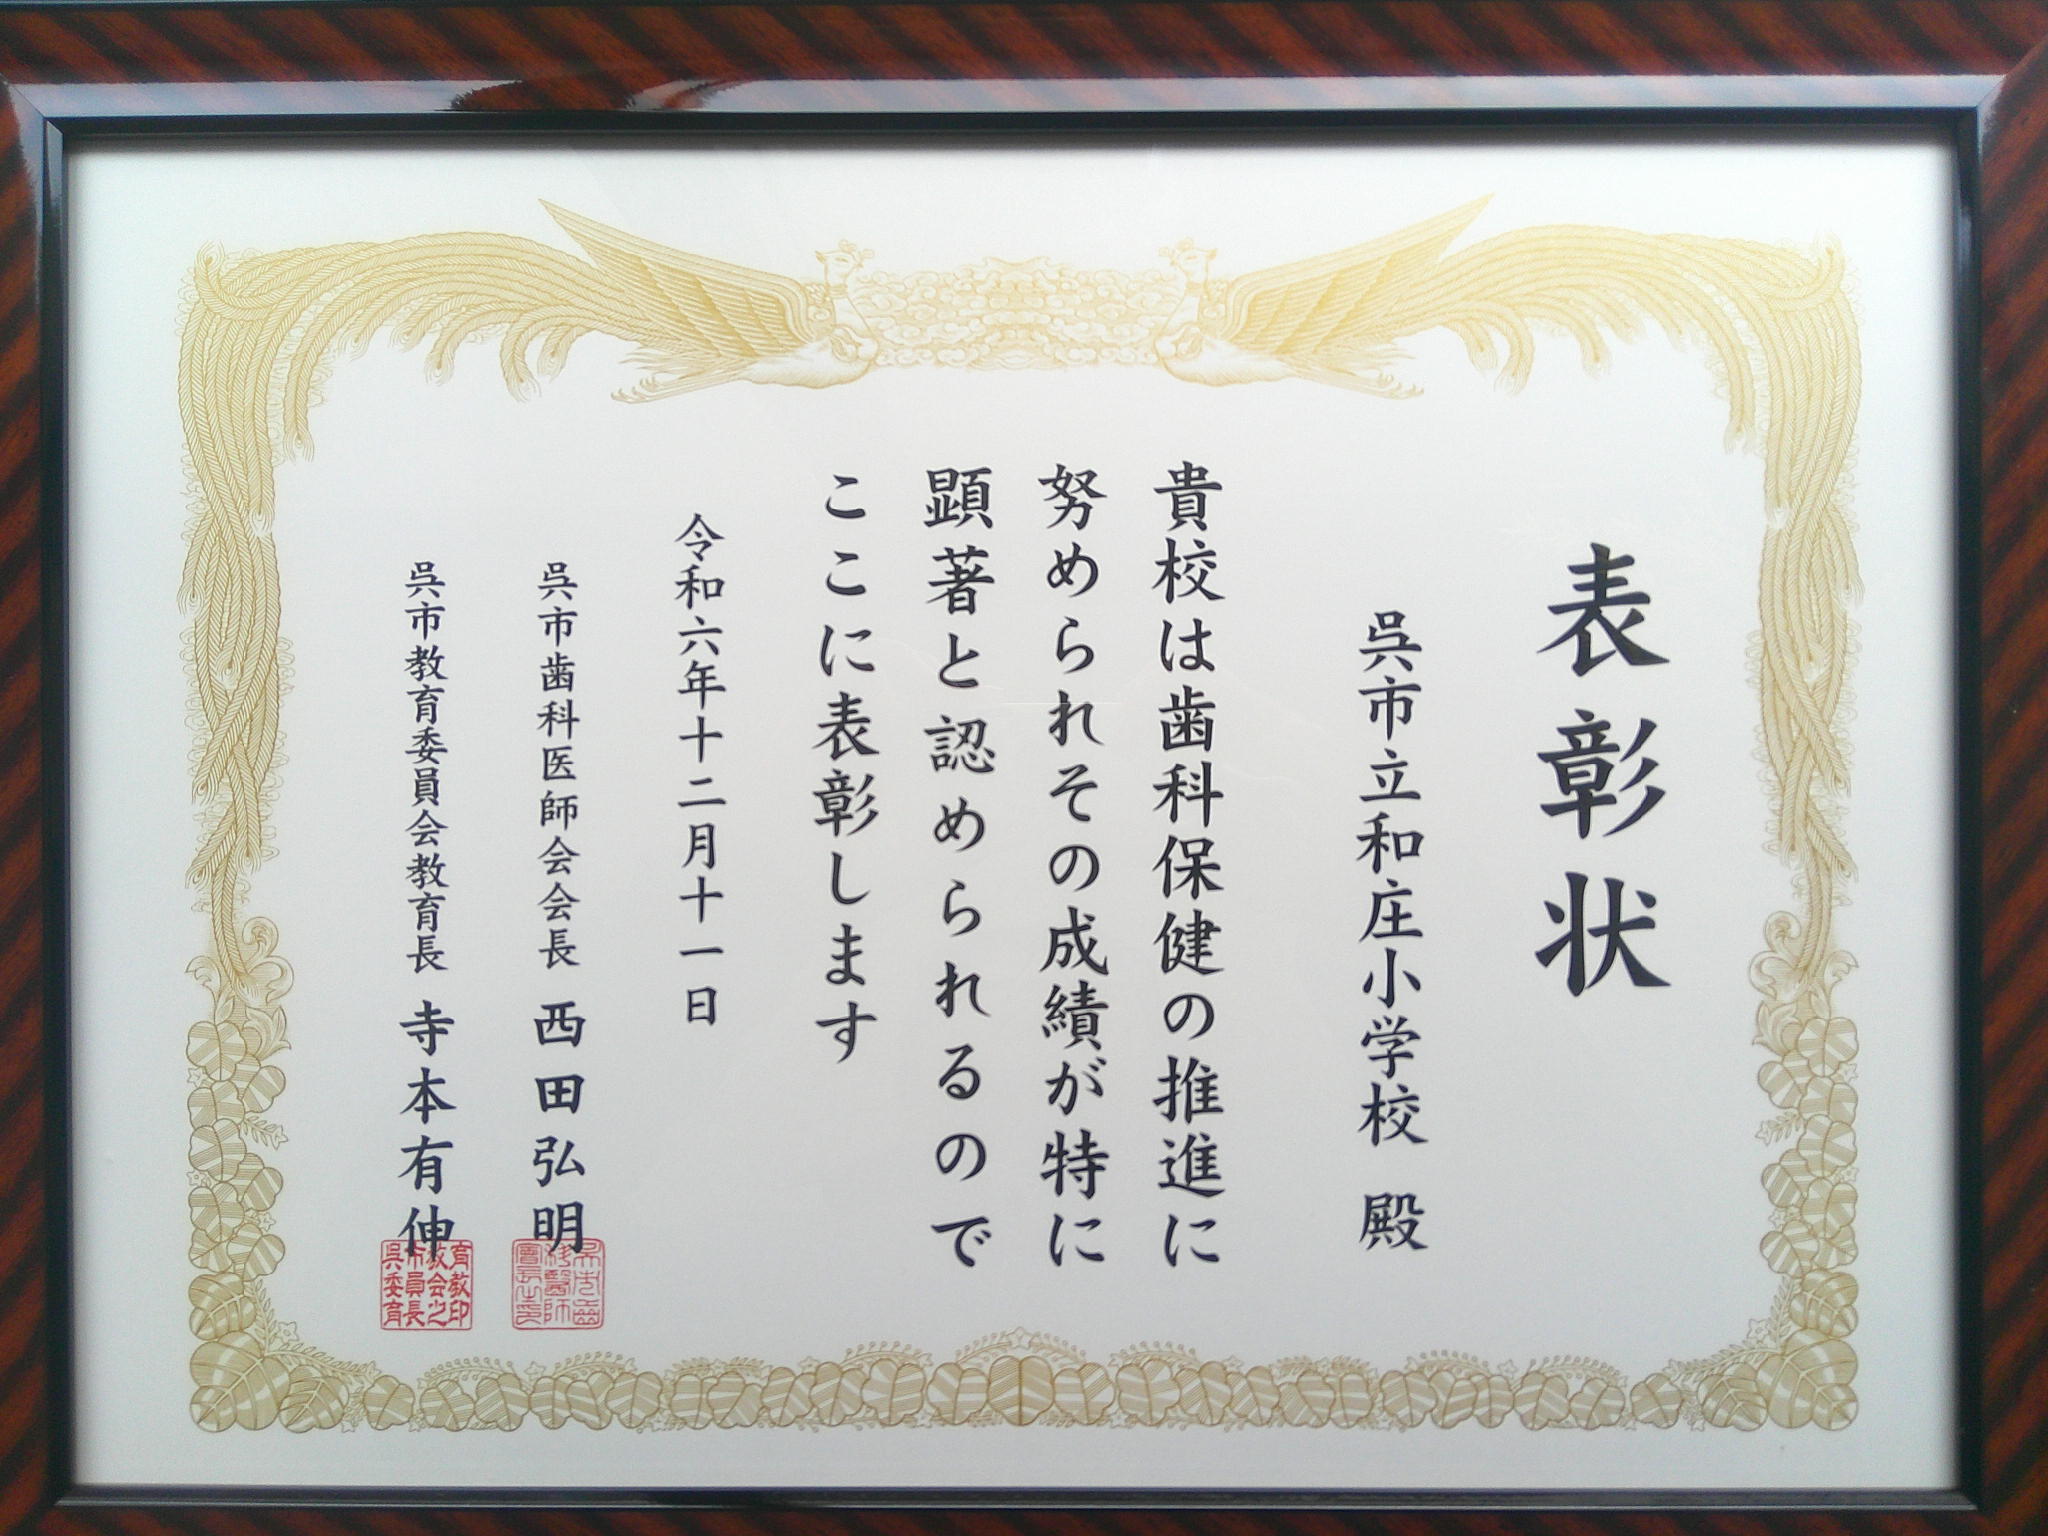 表彰状
呉市立和庄小学校 殿
貴校は歯科保健の推進に
努められその成績が特に
顕著と認められるので
ここに表彰します
令和六年十二月十一日
呉市歯科医師会会長 西田弘明
呉市教育委員会教育長 寺本有伸
呉市教育委員会教育長之印